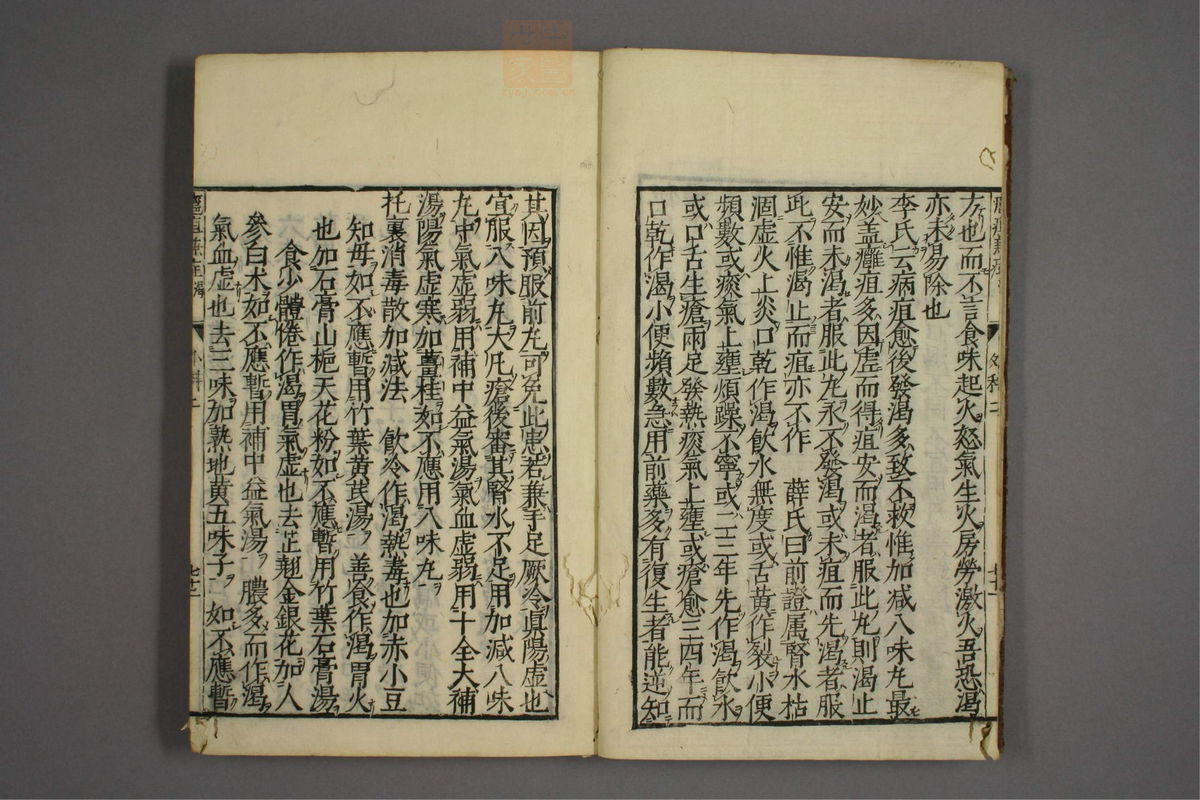 方也而不言食味起火怒氣生火房勞激火吾恐渴
亦未易除也
李氏云病疽愈後發渴多致不救惟加减八味丸最
妙盖癰疽多因虚而得疽安而渴者服此丸則渴止
安而未渴者服此丸永不發渴或未疽而先渴者服
此不惟渴止而疽亦不作　薛氏曰前證属腎水枯
涸虚火上炎口乾作渴飲水無度或舌黄作裂小便
頻數或痰氣上壅煩躁不寧或二三年先作渴飲水
或口舌生瘡兩足發熱痰氣上壅或瘡愈三四年而
口乾作渴小便頻數急用前藥多有復生者能逆知
其因預服前丸可免此患若兼手足厥冷眞陽虚也
宜服八味丸大凡瘡後審其腎水不足用加减八味
丸中氣虚弱用補中益氣湯氣血虚弱用十全大補
湯陽氣虚寒加薑桂如不應用八味丸
托裏消毒散加减法　飲冷作渴熱毒也加赤小豆
知母如不應暫用竹葉黄芪湯　善食作渴胃火
也加石膏山梔天花粉如不應暫用竹葉石膏湯
食少體倦作渴胃氣虚也去芷翹金銀花加人
參白术如不應暫用補中益氣湯　膿多而作渴
氣血虚也去三味加熟地黄五味子　如不應暫